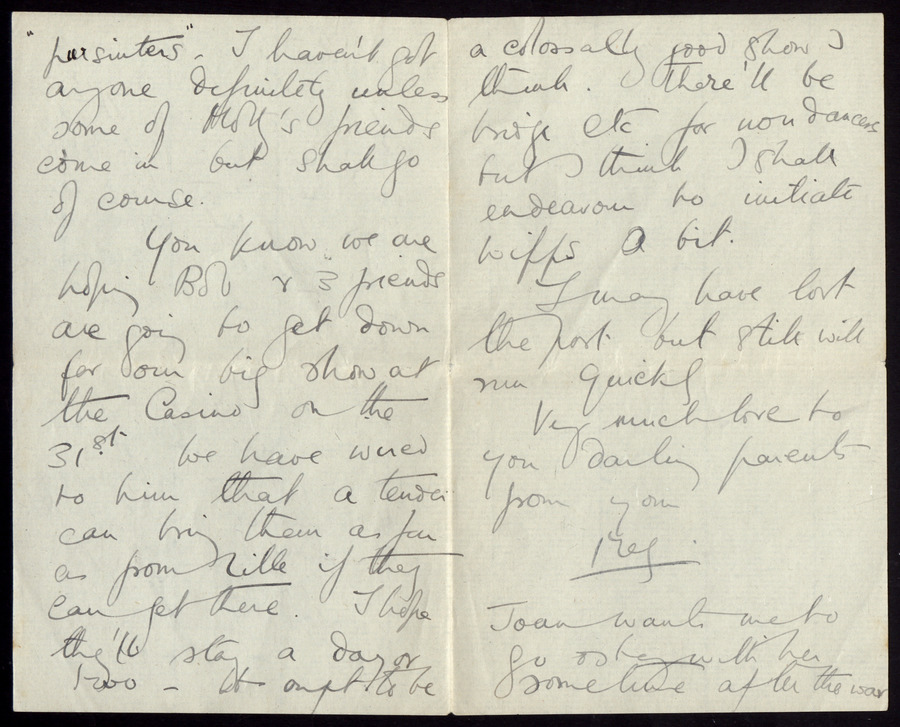 "pursuiters" - I haven't got
anyone definitely unless
some of Molly's friends
come in but shall go
of course.
You know we are
hoping Bob & 3 friends
are going to get down
for our big show at
the Casino on the
31st. We have wired
to him that a tender
can bring them as far
as from Lille if they
can get there. I hope
they'll stay a day or
two - It ought to be
a colossally good show I
think. There'll be
bridge etc for non dancers
but I think I shall
endeavour to initiate
a bit.
I may have lost
the post but still will
run quickly
Very much love to
you darling parents
from your
Joan wants me to
go & stay with her
sometime after the war